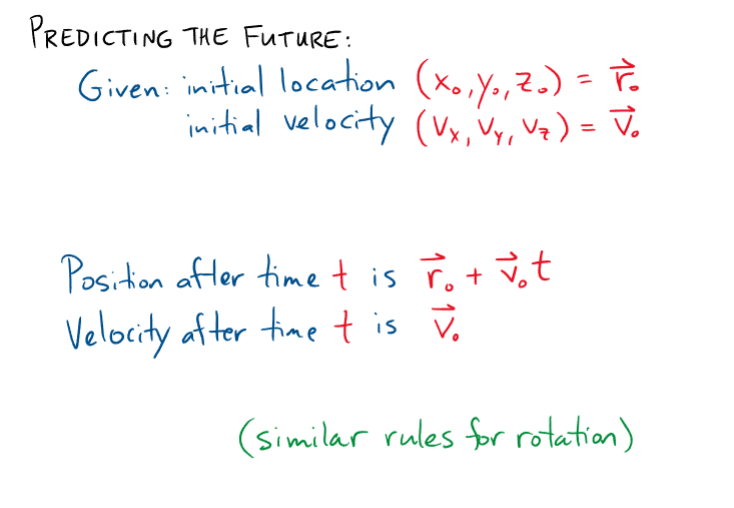 PREDICTING THE FUTURE:
Given: initial location (x₀,y₀,z₀) = r⃗₀
initial velocity (Vx, Vy, Vz) = V⃗₀
Position after time t is r⃗₀ + V⃗₀t
Velocity after time t is V⃗₀
(similar rules for rotation)